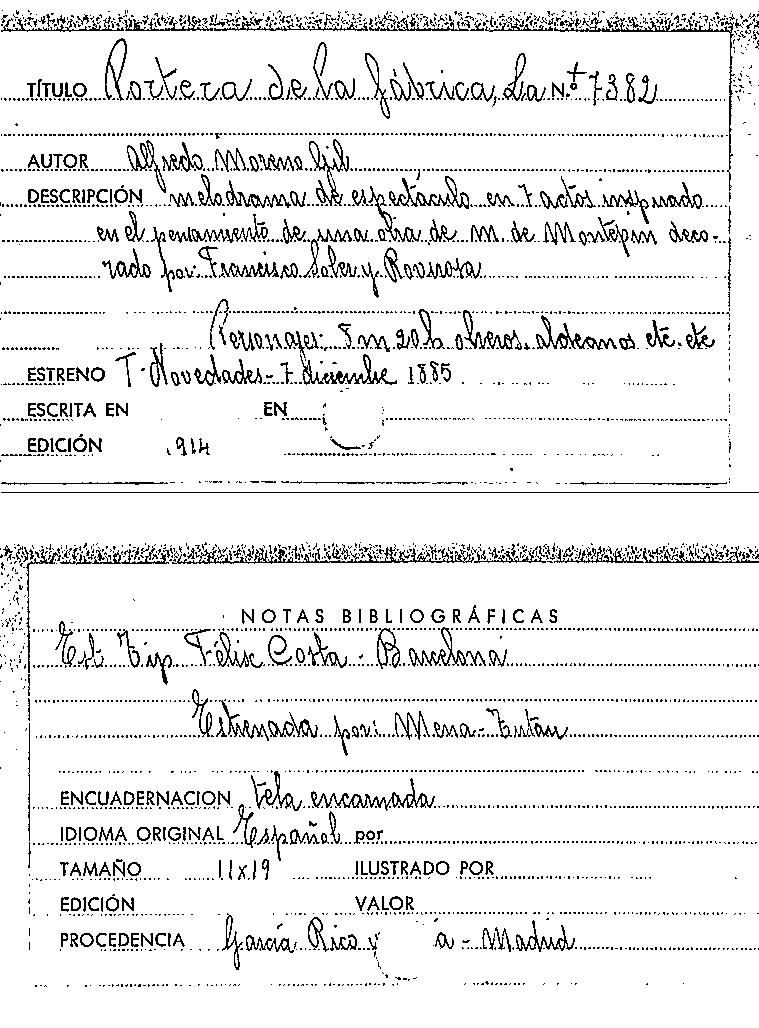 TÍTULO Portera de la fábrica, La N.º 7382
AUTOR Alfredo Moreno Gil
DESCRIPCIÓN melodrama de espectáculo en 7 actos inspirado
en el pensamiento de una obra de M. de Montepin deco-
rado por: Francisco Soler y Rovirosa
Personajes: 8 m 20 h obreros, aldeanos etc. etc
ESTRENO T. Novedades - 7 diciembre 1885
ESCRITA EN EN
EDICIÓN 1914
NOTAS BIBLIOGRÁFICAS
Est. Tip. Félix Costa - Barcelona
Estrenada por: Mena - Tutau
ENCUADERNACION tela encarnada
IDIOMA ORIGINAL Español por
TAMAÑO 11x19 ILUSTRADO POR
EDICIÓN VALOR
PROCEDENCIA García Rico y a - Madrid